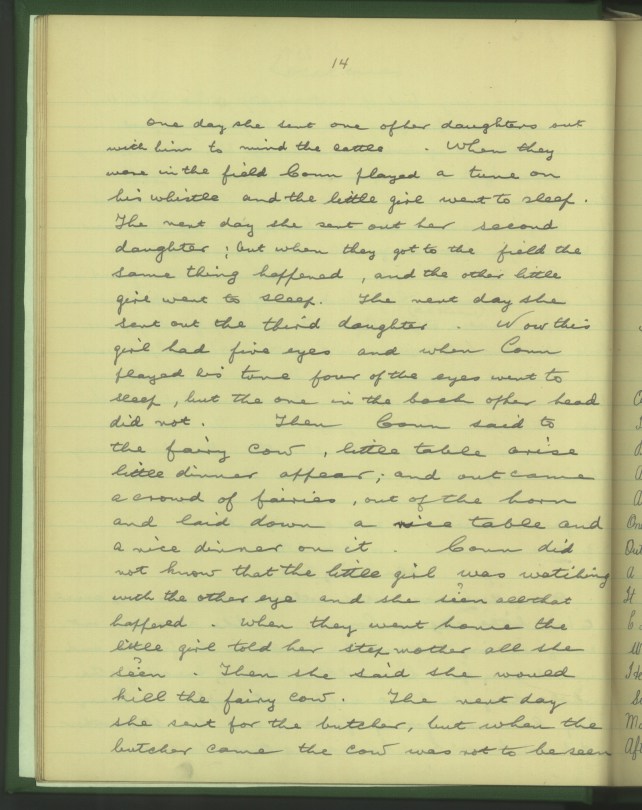 14
One day she sent one ofher daughters out
with him to mind the cattle . When they
were in the field Conn played a tune on
his whistle and the little girl went to sleep.
The next day she sent out her second
daughter ; but when they got to the field the
same thing happened , and the other little
girl went to sleep. The next day she
sent out the third daughter . Now this
girl had five eyes and when Conn
played his tune four of the eyes went to
sleep , but the one in the back ofher head
did not . Then Conn said to
the fairy cow , little table arise
little dinner appear ; and out came
a crowd of fairies , out of the horn
and laid down a nice table and
a nice dinner on it . Conn did
not know that the little girl was watching
with the other eye and she ? seen all that
happened . When they went home the
little girl told her step mother all she
? seen . Then she said she would
kill the fairy cow . The next day
she sent for the butcher , but when the
butcher came the cow was not to be seen